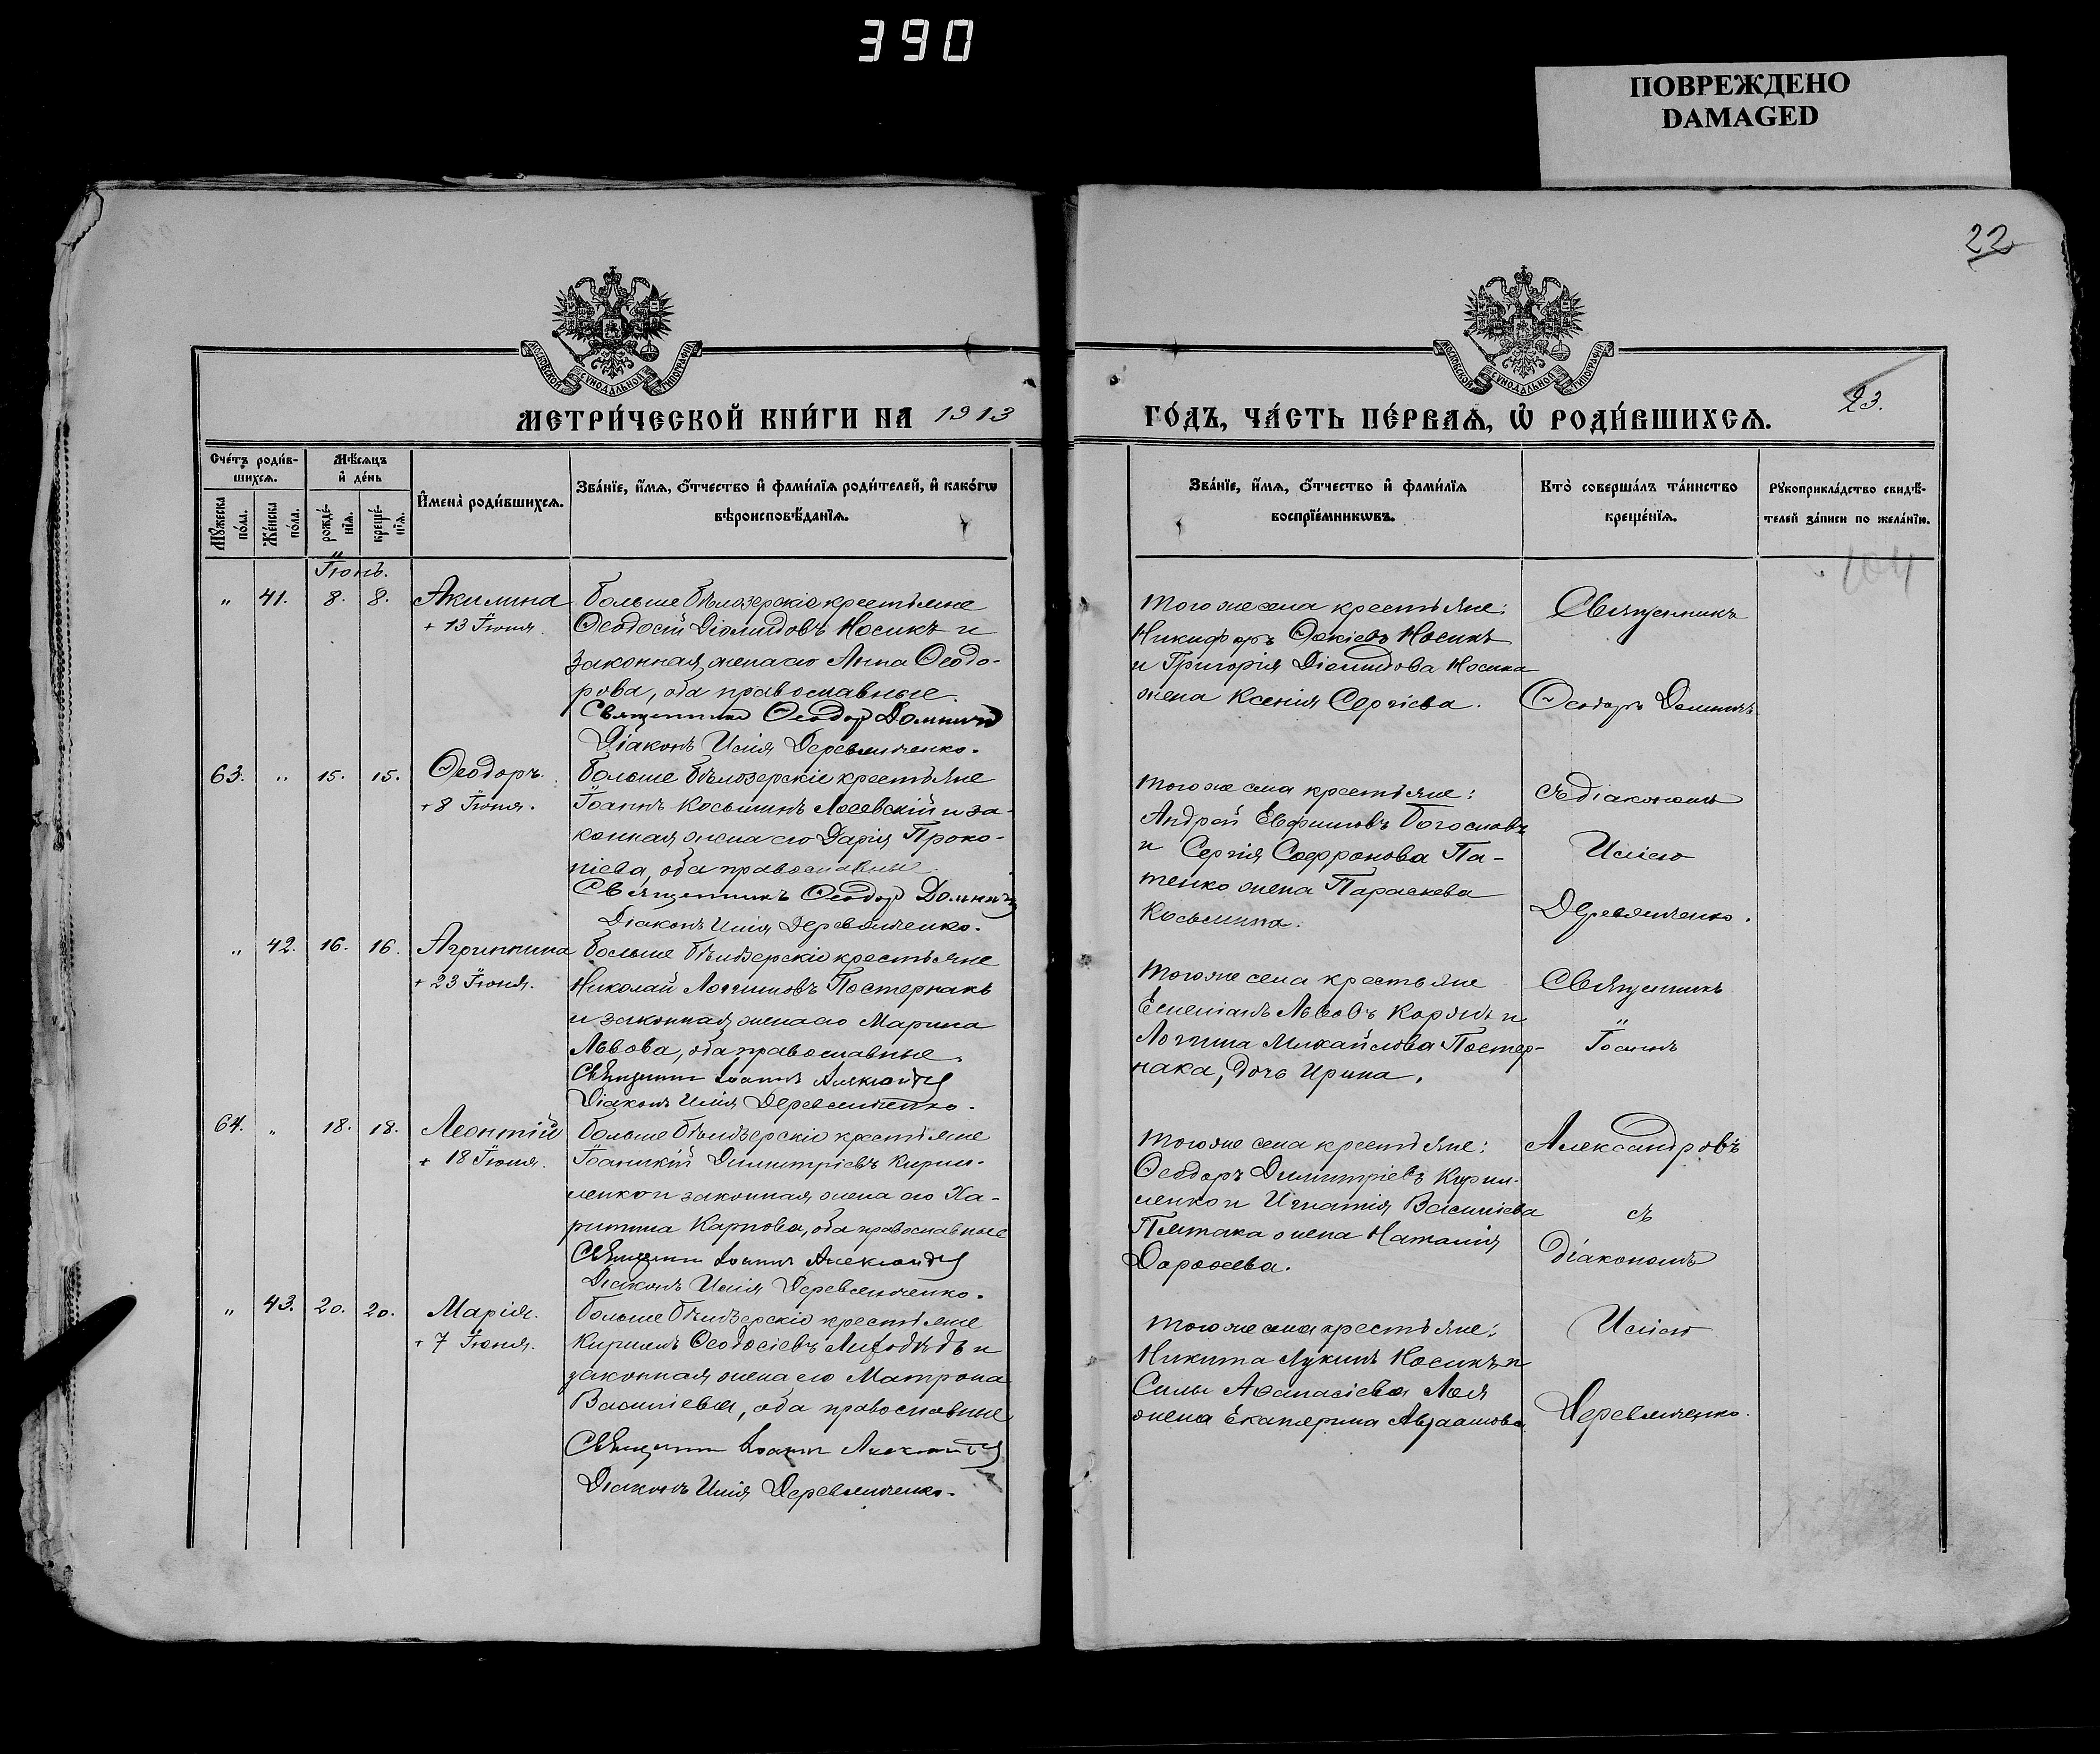 390
ПОВРЕЖДЕНО
DAMAGED
22
МОСКОВСКОЙ СѴНОДАЛЬНОЙ ТИПОГРАФІИ
МОСКОВСКОЙ СѴНОДАЛЬНОЙ ТИПОГРАФІИ
МЕТРИ́ЧЕСКОЙ КНИ́ГИ НА 1913
ГО́ДЪ, ЧА́СТЬ ПЕ́РВАѦ, Ѡ҆ РОДИ́ВШИХСѦ.
23.
Сче́тъ роди́в-
шихсѧ.
Мꙋ́жеска по́ла.
Же́нска по́ла.
Мѣ́сѧцъ и҆ де́нь
рожде́-нїѧ.
креще́-нїѧ.
И҆мена̀ роди́вшихсѧ.
Зва́нїе, и҆́мѧ, ѻ҆́тчество и҆ фами́лїѧ роди́телей, и҆ како́гѡ
вѣроисповѣ́данїѧ.
Зва́нїе, и҆́мѧ, ѻ҆́тчество и҆ фами́лїѧ
воспрїе́мникѡвъ.
Кто̀ соверша́лъ та́инство
креще́нїѧ.
Рꙋкоприкла́дство свидѣ́-
телей за́писи по жела́нїю.
104
Іюнь.
„ 41. 8. 8. Акилина
+ 13 Іюня.
Больше Бѣлозерскіе крестьяне
Ѳеодосій Діомидовъ Носикъ и
законная жена его Анна Ѳеодо-
рова, оба православные.
Священникъ Ѳеодоръ Домнич
Діаконъ Илія Деревянченко.
Того же села крестьяне:
Никифоръ Носикъ
и Григорія Діомидова Носика
жена Ксенія Сергіева.
Священникъ
Ѳеодоръ
63. „ 15. 15. Ѳеодоръ.
+ 8 Іюня.
Больше Бѣлозерскіе крестьяне
Іоаннъ Косьминъ Лосевскій и за-
конная жена его Дарія Проко-
піева, оба православные.
Священникъ Ѳеодоръ
Діаконъ Илія Деревянченко.
Того же села крестьяне:
Андрей Евфимовъ
и Сергія Софронова Па-
тенко жена Параскева
Косьмина.
съ діакономъ
Иліею
Деревянченко.
„ 42. 16. 16. Агриппина
+ 23 Іюня.
Больше Бѣлозерскіе крестьяне
Николай Логгиновъ Постернакъ
и законная жена его Марина
Львова, оба православные.
Священникъ Іоаннъ Александр
Діаконъ Илія Деревянченко.
Того же села крестьяне
Львовъ Коржъ и
Логгина Михайлова Постер-
нака, дочь Ирина.
Священникъ
Іоаннъ
64. „ 18. 18. Леонтій
+ 18 Іюня.
Больше Бѣлозерскіе крестьяне
Іоанникій Димитріевъ Кирил-
ленко и законная жена его Ха-
ритина Карпова, оба православные
Священникъ Іоаннъ Александр
Діаконъ Илія Деревянченко.
Того же села крестьяне:
Ѳеодоръ Димитріевъ Кирил-
ленко и Игнатія Василіева
Пятака жена Наталія
Дороѳеева.
Александровъ
съ
діакономъ
„ 43. 20. 20. Марія.
+ 7 Іюня.
Больше Бѣлозерскіе крестьяне
Кириллъ Ѳеодосіевъ Лиходѣдъ и
законная жена его Матрона
Василіева, оба православные
Священникъ Іоаннъ Александр
Діаконъ Илія Деревянченко.
Того же села крестьяне:
Никита Лукинъ Носикъ и
Силы Аѳанасіева Лея
жена Екатерина Авраамова.
Иліею
Деревянченко.